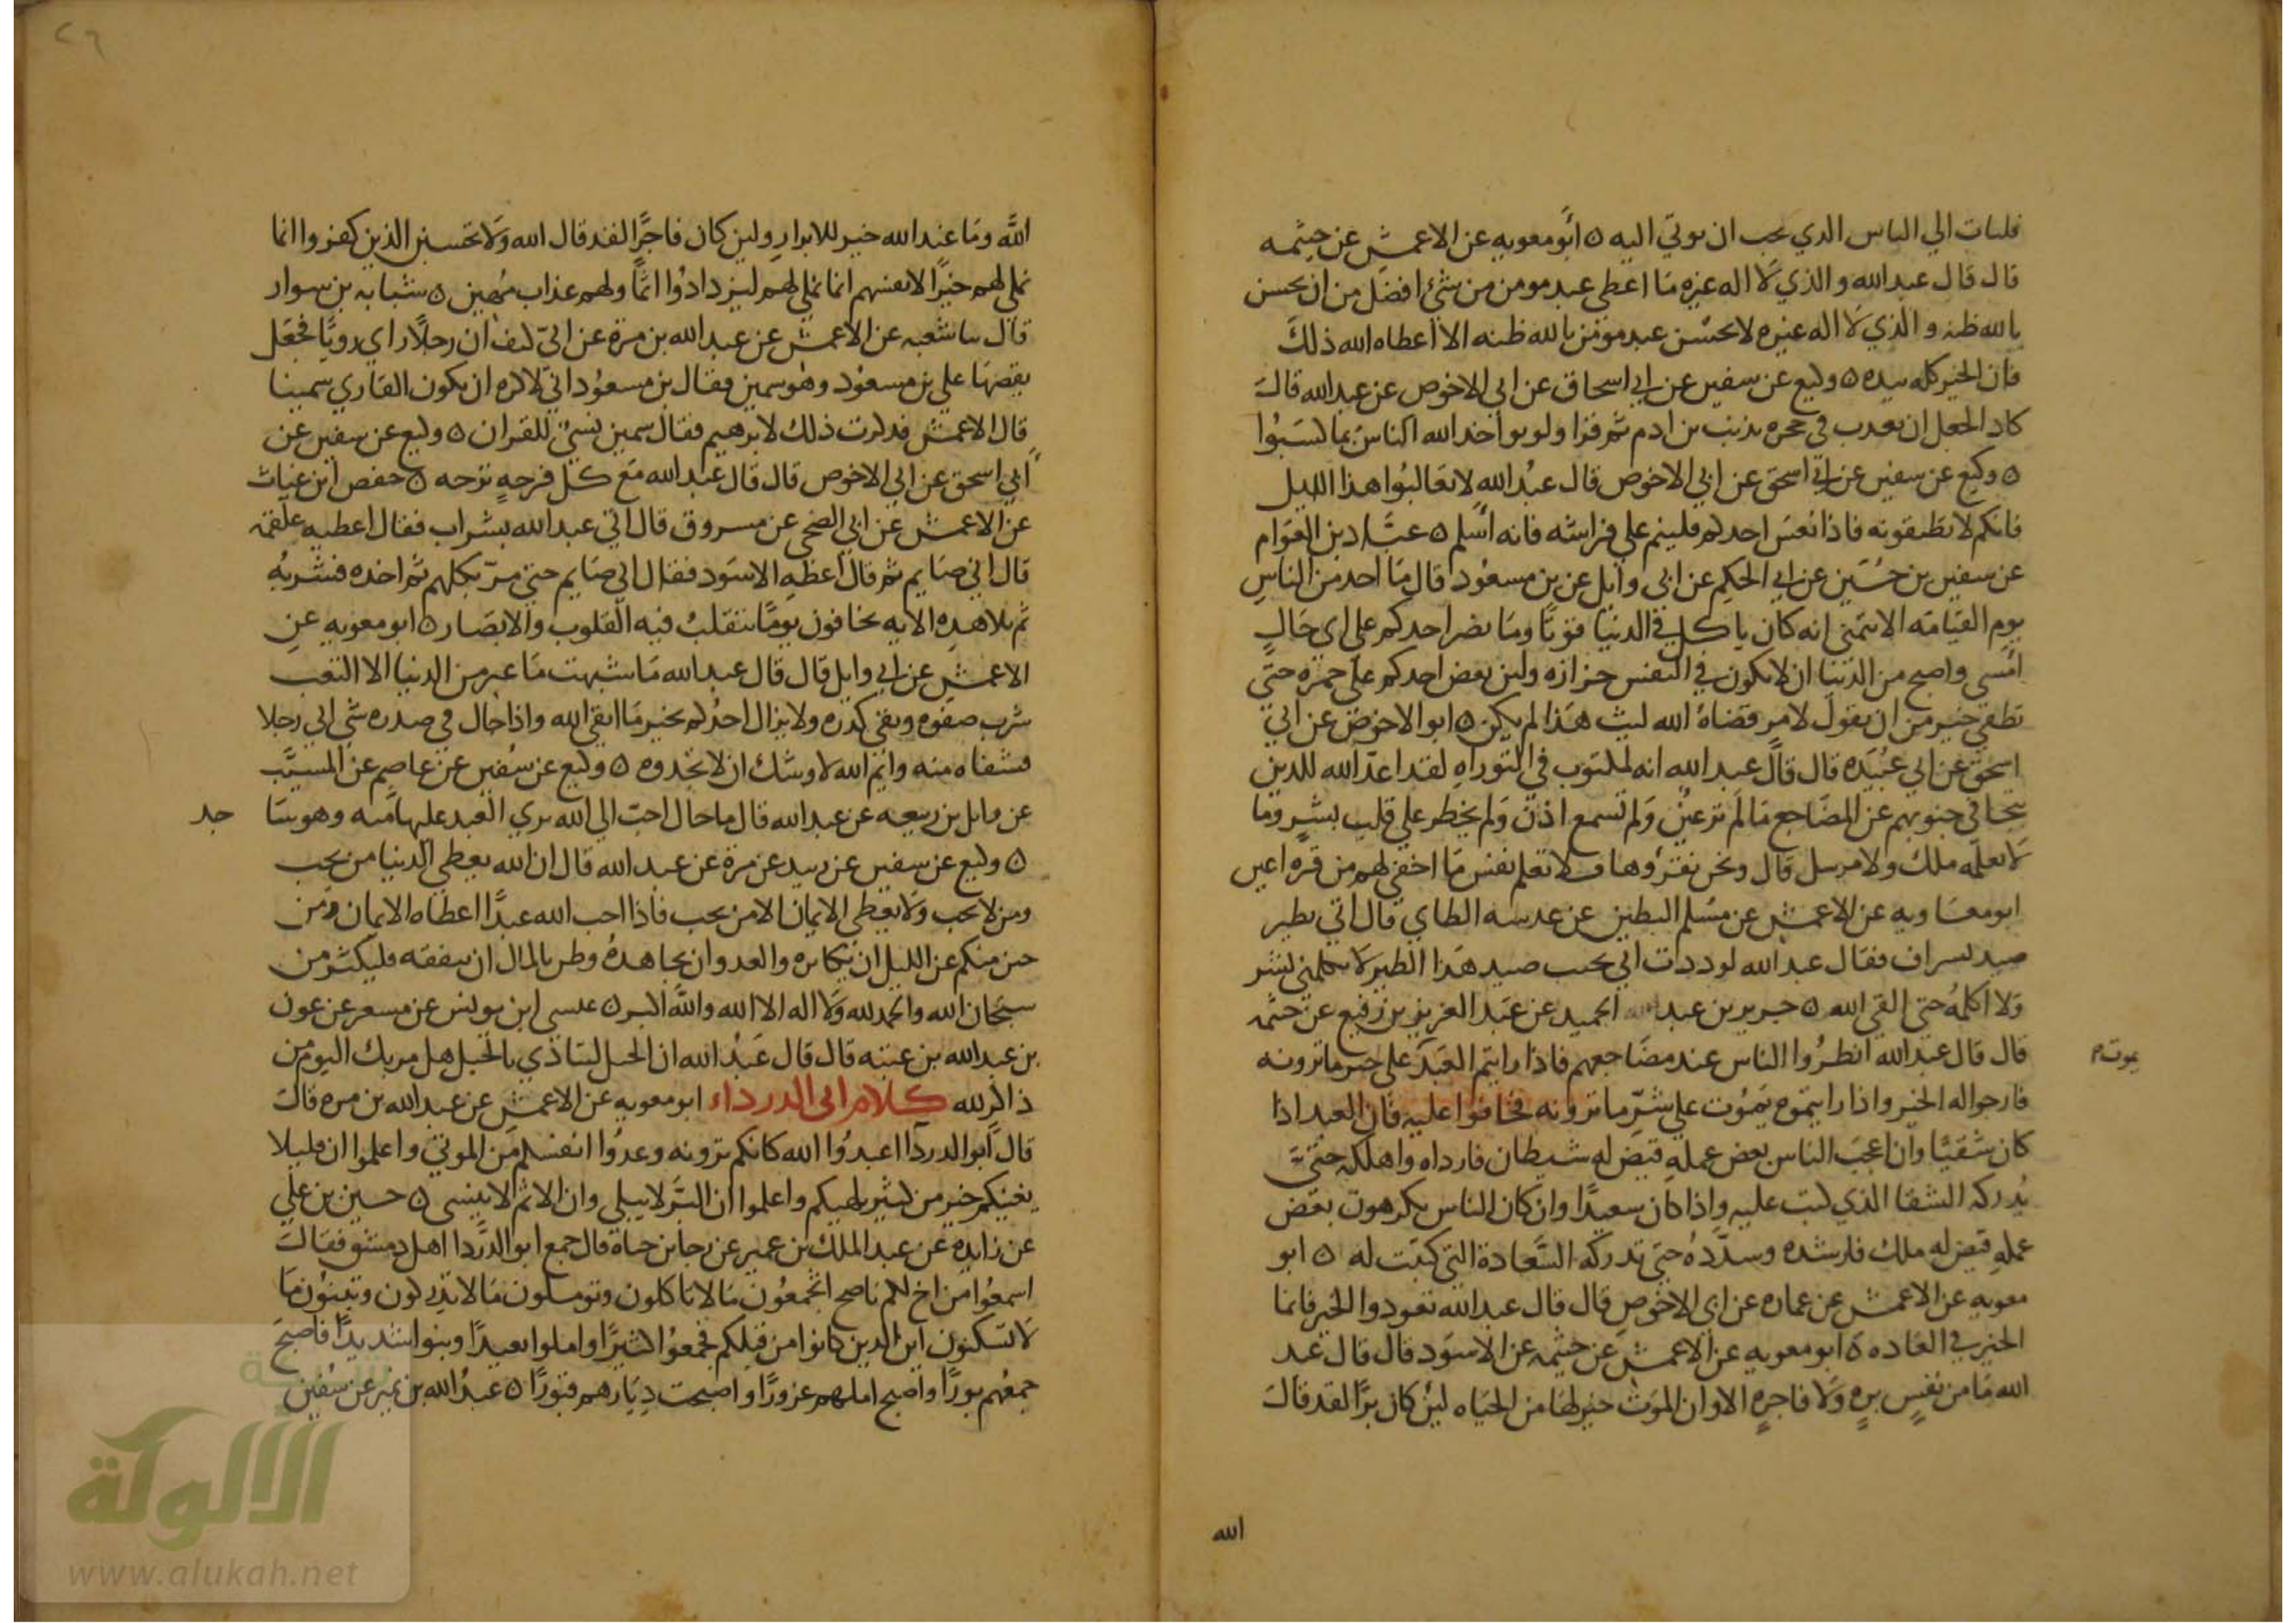 فليات الي الناس الذي يحب ان يوتي اليه ه أبو معويه عن الاعمش عن خيثمه
قال قال عبد الله والذي لا اله غيره مَا اعطي عبد مومن من شئ افضل من ان يحسن
بالله ظنه والذي لا اله غيره لا يحسن عبد مؤمن بالله ظنه الا اعطاه الله ذلك
فان الخير كله بيده ه وكيع عن سفين عن ابي اسحاق عن ابي الاحوص عن عبد الله قال
كاد الجعل ان يعذب في جحره بذنب بن ادم ثم قرا ولو يواخذ الله الناس بما كسَبُوا
ه وكيع عن سفين عن ابي اسحق عن ابي الاحوص قال عبْد الله لا تغالبُوا هذا الليل
فانكم لا تطيقونه فاذا نعسَ احدكم فلينم علي فراشه فانه أسلم ه عبَّاد بن العوَام
عن سفين بن حُسَين عن ابي الحكم عن ابي وايل عن بن مسعُود قال مَا احد من الناسِ
يوم القيَامَه الا يتمَني انه كان ياكل في الدنيا قوتًا ومَا يضر احدكم علي اي حَالٍ
امْسي واصبح من الدنيا ان لا يكون في النفس حزازه ولين يعض احدكم علي جمرة حتّي
تطفي خير من ان يقول لامر قضَاهُ الله ليت هَذا لم يكن ه ابو الاحوص عن ابي
اسحق عن ابي عبَيْده قال قال عبد الله انه لمكتوب في التوراه لقد اعدّ الله للذين
تتجافي جنوبهم عن المضَاجع مَا لم تر عينٌ وَلم تسمع اذن وَلم يخطر علي قلب بشرٍ ومَا
لا يعلَمه ملك ولا مرسل قال ونحن نقرؤها فلا تعلم نفس مَا اخفي لهم من قره اعين
ابو معَاويه عن الاعمش عن مسْلم البطين عن عدسه الطاي قال اتي بطير
صيد بسراف فقال عبد الله لوددت اني بحيث صيد هَذا الطير لا يكلمني بشر
وَلا اكلمُه حتي القي الله ه جرير بن عبد الحميد عن عَبد العزيز بن رفيع عن خثمه
قال قال عبد الله انظُروا الناس عند مضَاجعهم فاذا رايتم العَبدَ علي خير ما ترونه
يموت م
فارجوا له الخير واذا رايتموه يَمُوت علي شرِّ ما ترونه فخافوا عليه فان العبد اذا
كان شقيًا وان اعجَبَ الناس بعض عمله قيَّض له شيطان فارداه واهلكه حَتّي
يُدركه الشقا الذي كتب عليه واذا كان سعيدًا وان كان الناس يكرهون بعَض
عمله قيض له ملك فارشده وسدّدهُ حَتي تدركه السَّعادة التي كتبَت له ه ابو
معويه عن الاعمش عن عماره عن ابي الاحوص قال قال عبد الله تعودوا الخير فانما
الخير في العَاده ه ابو معويه عن الاعمش عن خيثمه عن الاسوَد قال قال عبد
الله مَا من نفسٍ برهٍ وَلا فاجرهٍ الا وان الموَت خير لهَا من الحيَاه لئن كان برًا لقد قال
الله
اللَّه ومَا عند الله خير للابرارِ ولين كان فاجرًا لقد قال الله وَلا تحسبن الذين كفروا انما
نملي لهم خيرًا لانفسهم انما نملي لهم ليزدادُوا اثمًا ولهم عذاب مُهين ه شبابه بن سوار
قال سا شعبه عن الاعمش عن عبد الله بن مرة عن ابي كنف ان رجلًا راي رويَا فجَعَل
يقصهَا علي بن مسعُود وهُو سمين فقال بن مسعوُد اني لاكره ان يكون القاري سمينا
قال الاعمش فذكرت ذلك لابرهيم فقال سمين نسيٌ للقران ه وكيع عن سفين عن
ابي اسحق عن ابي الاحوص قال قال عبد الله مَع كل فرحهٍ ترحه ه حفص ابن غياث
عن الاعمش عن ابي الضحي عن مسروق قال اتي عبد الله بشراب فقال اعطيه علقمه
قال اني صَايم ثم قال أعطه الاسوَد فقال اني صَايم حتي مرّ بكلهم ثم اخذه فشربهُ
ثم تلا هذه الايه يخافون يومًا تتقلبُ فيه القلوب والابصَار ه ابو معويه عنِ
الاعمش عن ابي وايل قال قال عبد الله مَا شبهت مَا غبر من الدنيا الا الثغب
شرب صفوه وبقي كدره ولا يزال احدُكم بخير مَا اتقي الله واذا حال في صدره شي اتي رجلا
فشفاه منه وايْم الله لاوشك ان لا تجدوه ه وكيع عن سُفين عن عاصِم عن المسيَّب
عن وايل بن ربيعه عن عبد الله قال ما حَال احبّ الي الله يري العَبد عليها منه وهو سَا
جد
ه وكيع عن سفين عن زبيد عن مرة عن عبد الله قال ان الله يعطي الدنيا من يحب
ومن لا يحب وَلا يعطي الايمان الا من يحب فاذا احب الله عبدًا اعطاه الايمان ومَن
جبن منكم عن الليل ان يكابده والعدو ان يجاهدهُ وظن بالمال ان ينفقه فليكثر من
سبحَان الله والحمد لله وَلا اله الا الله واللَّه اكبر ه عيسي ابن يونس عن مسعر عن عون
بن عبد الله بن عتبه قال قال عَبْد الله ان الجبل لينادي بالجبل هل مر بك اليوم من
ذاكر لله كلام ابي الدرداء ابو معويه عن الاعمش عن عبد الله بن مره قال
قال ابو الدردا اعبدُوا الله كانكم ترونه وعدُوا انفسكم من الموتي واعلموا ان قليلا
يغنيكم خير من كثير يلهيكم واعلموا ان البرَّ لا يبلي وان الاثم لا ينسي ه حسين بن علي
عن زايده عن عبد الملك بن عمير عن رجا بن حياة قال جمع ابو الدَّردا اهل دمشق فقَال
اسمعُوا من اخ لكم ناصح اتجمعُون مَا لا تاكلون وتوملون مَا لا تدركون وتبنُون مَا
لا تسكنون اين الذين كانوا من قبلكم فجمعوُا كثيرًا واملوا بعيدًا وبنوا شديدًا فاصبحَ
جمعُهم بورًا واصبح املهم غرورًا واصبحت ديَارهم قبورًا ه عبدُ الله بن نمير عن سُفين
شبكة
الألوكة
www.alukah.net